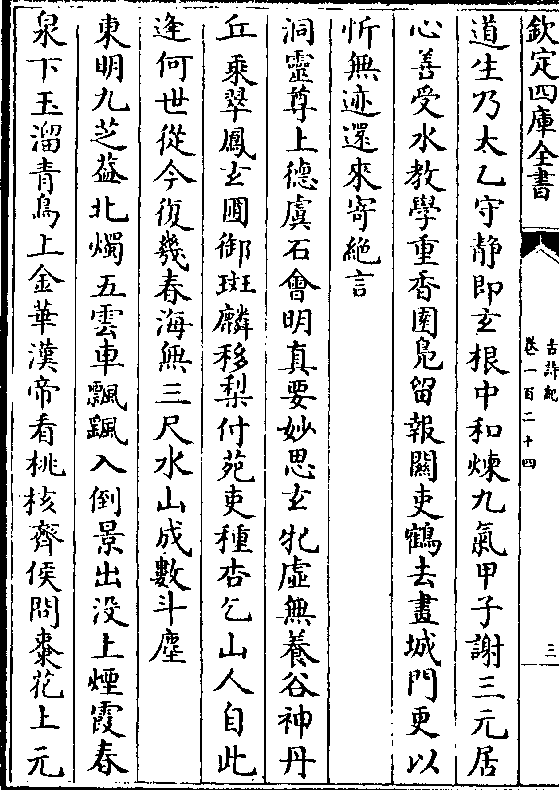 欽定四庫全書
古詩紀
卷一百二十四
三
道生乃太乙守靜即玄根中和煉九氣甲子謝三元居
心善受水教學重香園鳬留報關吏鶴去畫城門更以
忻無迹還來寄絶言
洞靈尊上德虞石會明真要妙思玄牝虛無養谷神丹
丘乘翠鳳玄圃御斑麟移梨付苑吏種杏乞山人自此
逢何世從今復幾春海無三尺水山成數斗塵
東明九芝葢北燭五雲車飄飖入倒景出没上煙霞春
泉下玉溜青鳥上金華漢帝看桃核齊侯問棗花上元